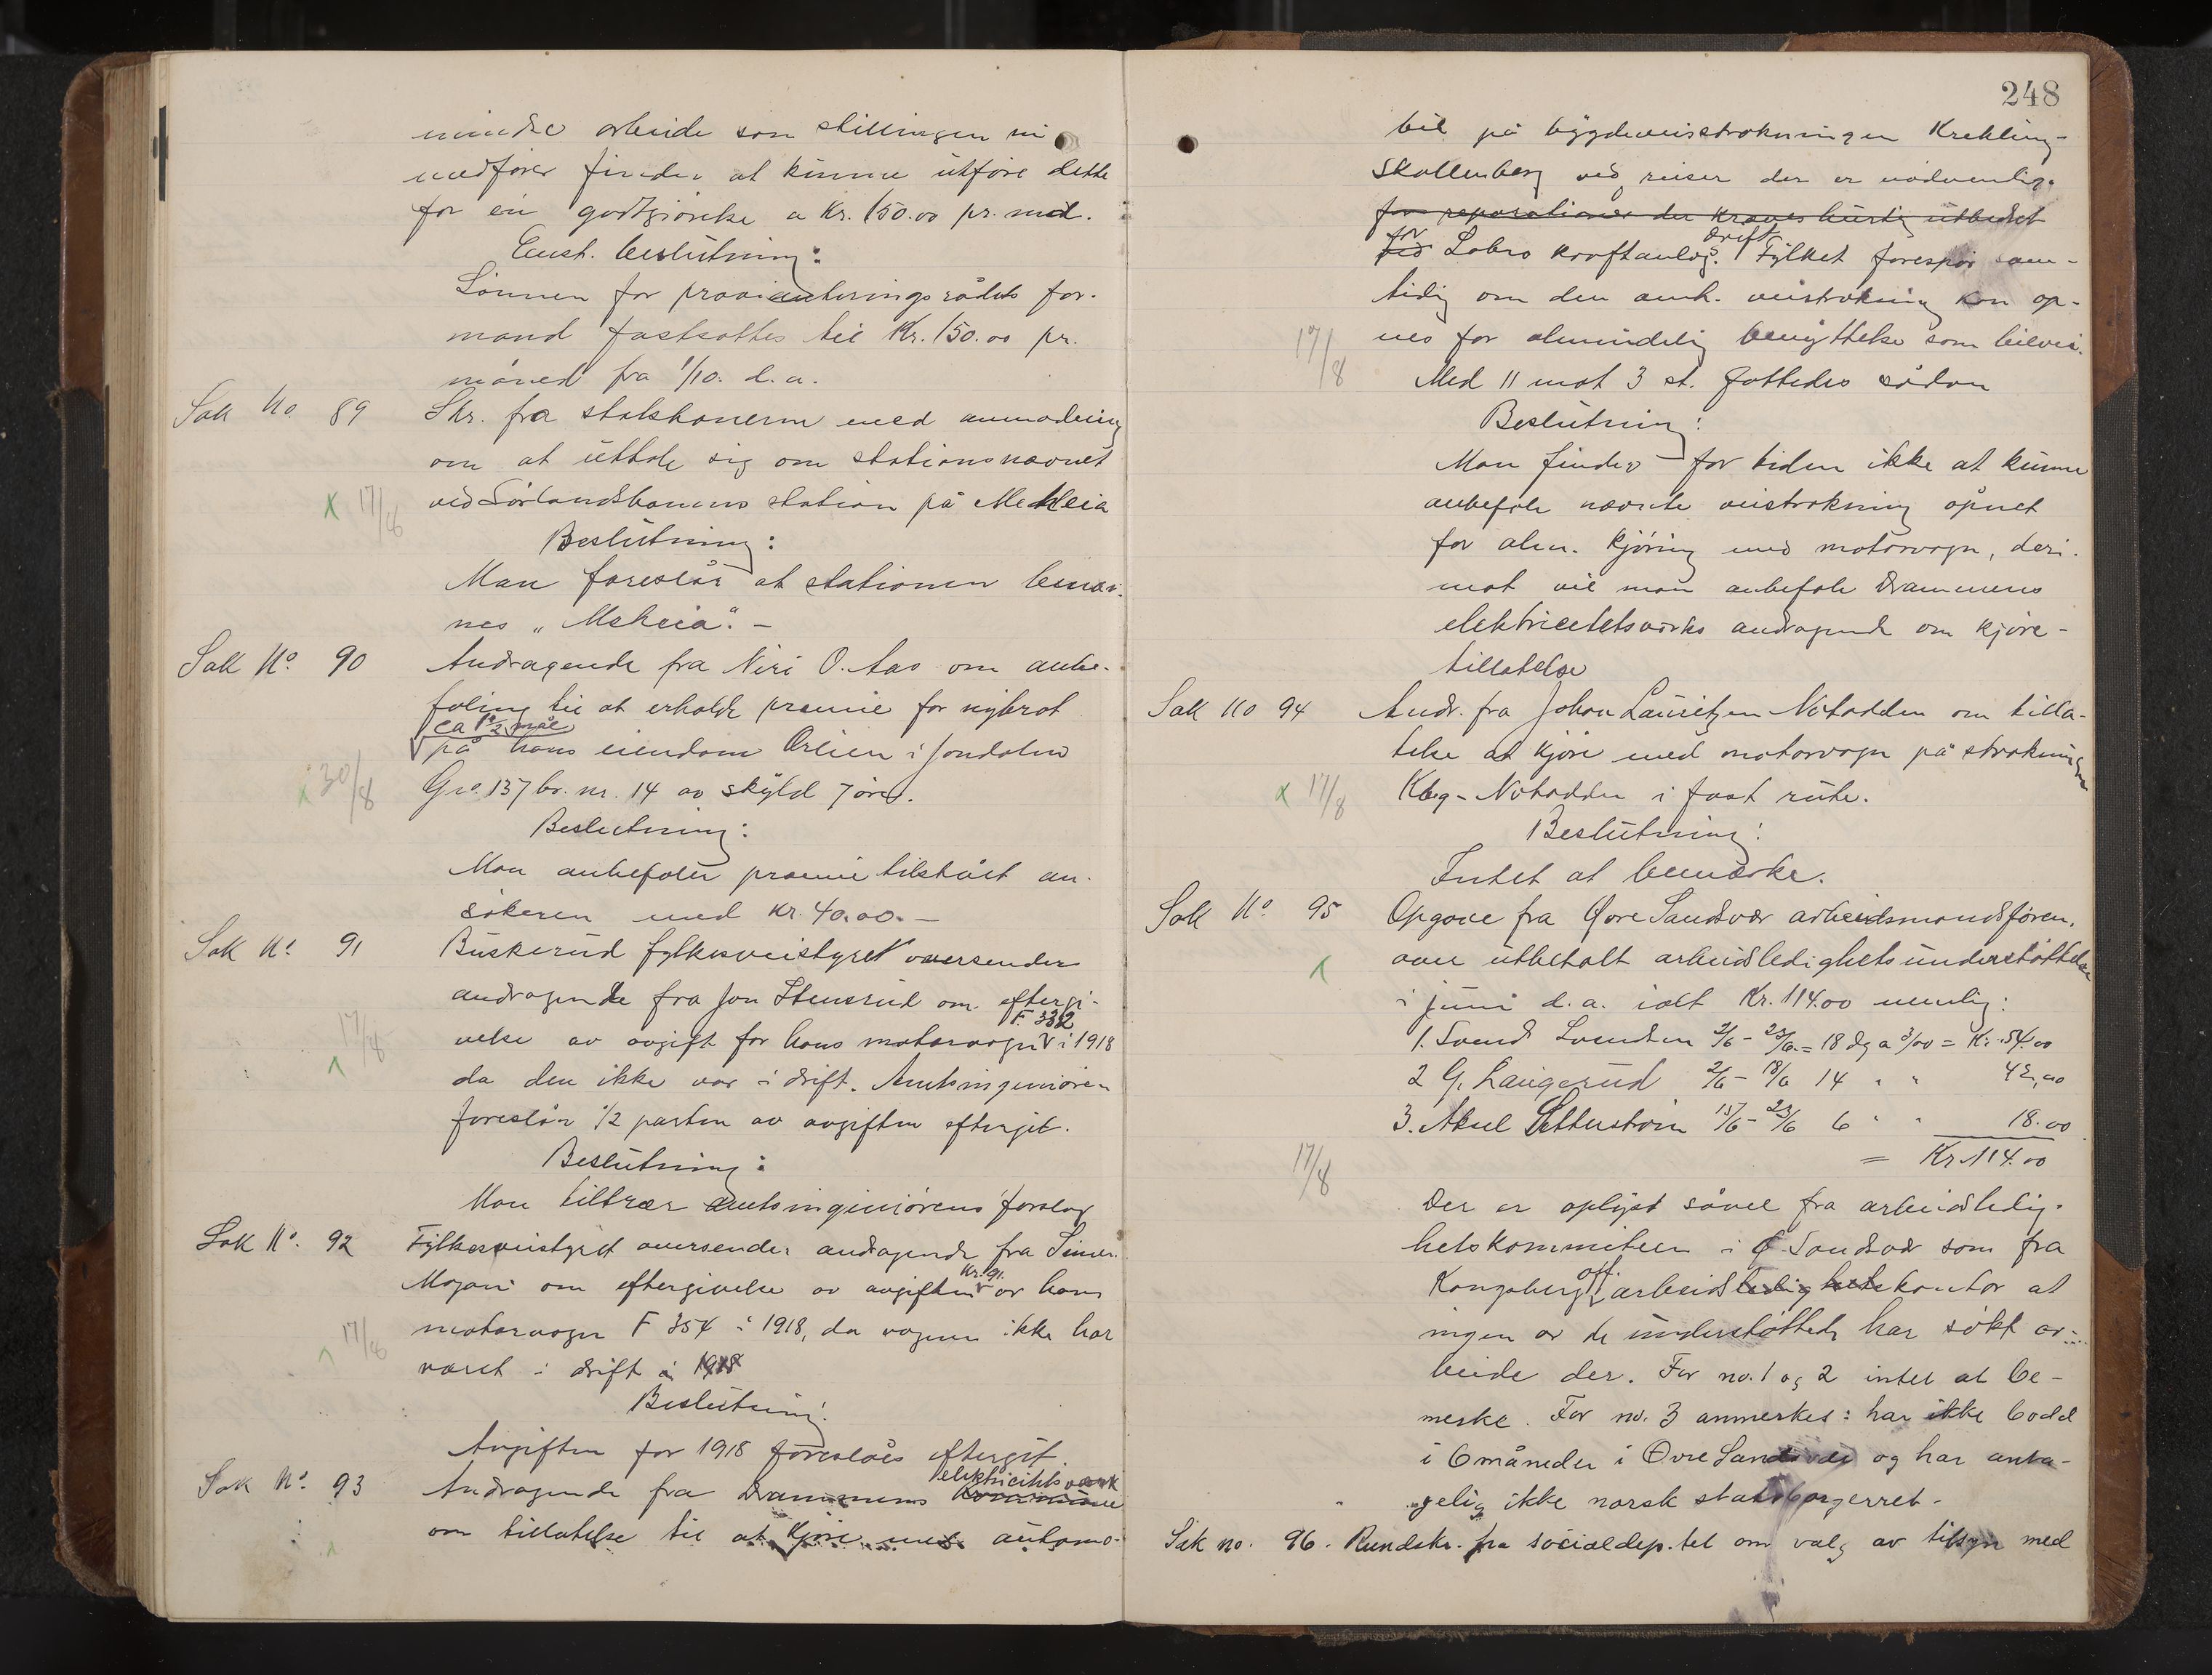 mindre arbeide som stillingen nu
medfører finder at kunne utføre dette
for en godtgjørelse a Kr. 150.00 pr. md.
Enst. beslutning:
Lønnen for provianteringsrådets for-
mand fastsattes til Kr. 150.00 pr.
måned fra 1/10. d.a.
Sak No. 89 Skr. fra statsbanerne med anmodning
om at uttale sig om stationsnavnet
x 17/8 ved Sørlandsbanens station på Mehleia
Beslutning:
Man foreslår at stationen benæv-
nes „Meheia". -
Sak No. 90 Andragende fra Niri O. Aas om anbe-
faling til at erholde præmie for nybrot
ca 1 1/2 mål
på hans eiendom Ørlien i Jondalen
x 30/8 Gno. 137 br. nr. 14 av skyld 7 øre.
Beslutning:
Man anbefaler præmie tilstået an-
søkeren med Kr. 40.00. -
Sak No. 91 Buskerud fylkesveistyret oversender
andragende fra Jon Stensrud om eftergi-
F. 332
17/8 velse av avgift for hans motorvogn i 1918
da den ikke var i drift. Amtsingeniøren
foreslår 1/2 parten av avgiften eftergit.
Beslutning:
Man tiltrær amtsingeniørens forslag
Sak No. 92 Fylkesveistyret oversender andragende fra Simen
Kr. 91.
Mogan om eftergivelse av avgiften av hans
17/8 motorvogn F 354 i 1918, da vognen ikke har
været i drift i 1918
Beslutning.
Avgiften for 1918 foreslåes eftergit.
elektricitetsverk
Sak No. 93 Andragende fra Drammens Kommune
om tillatelse til at kjøre med automo-
248
bil på bygdeveisstrækningen Krekling-
Skollenborg ved reiser der er nødvendig
for reparationer der kræves hurtig utbedret
for drift
ved Labro kraftanlæg. Fylket forespør sam-
tidig om den anh. veistrækning kan op-
17/8 nes for almindelig benyttelse som bilvei.
Med 11 mot 3 st. fattedes sådan
Beslutning:
Man finder for tiden ikke at kunne
anbefale nævnte veistrækning åpnet
for alm. kjøring med motorvogn, deri-
mot vil man anbefale Drammens
elektricitetsverks andragende om kjøre-
tillatelse
Sak No 94 Andr. fra Johan Lauritzen Notodden om tilla-
telse at kjøre med motorvogn på strækningen
x 17/8 Kbg - Notodden i fast rute.
Beslutning:
Intet at bemærke.
Sak No. 95 Opgave fra Øvre Sandsvær arbeidsmandsforen.
over utbetalt arbeidsledighetsunderstøttelse
i juni d.a. ialt Kr. 114.00 nemlig:
1. Svend Svendsen 2/6 - 23/6 = 18 dg a 3/00 = Kr. 54.00
2 G. Laugerud 2/6 - 18/6 14 " " 42,00
3. Aksel Setterstrøm 15/6 - 23/6 6 " " 18.00
= Kr. 114.00
17/8
Der er oplyst såvel fra arbeidsledig-
hetskommiteen i Ø. Sandsvær som fra
off.
Kongsberg arbeidsledighetskontor at
ingen av de understøttede har søkt ar-
beide der. For no. 1 og 2 intet at be-
merke. For no. 3 anmerkes: har ikke bodd
i 6 måneder i Øvre Sandsvær og har anta-
gelig ikke norsk statsborgerret -
Sak no. 96. Rundskr. fra socialdep.tet om valg av tilsyn med